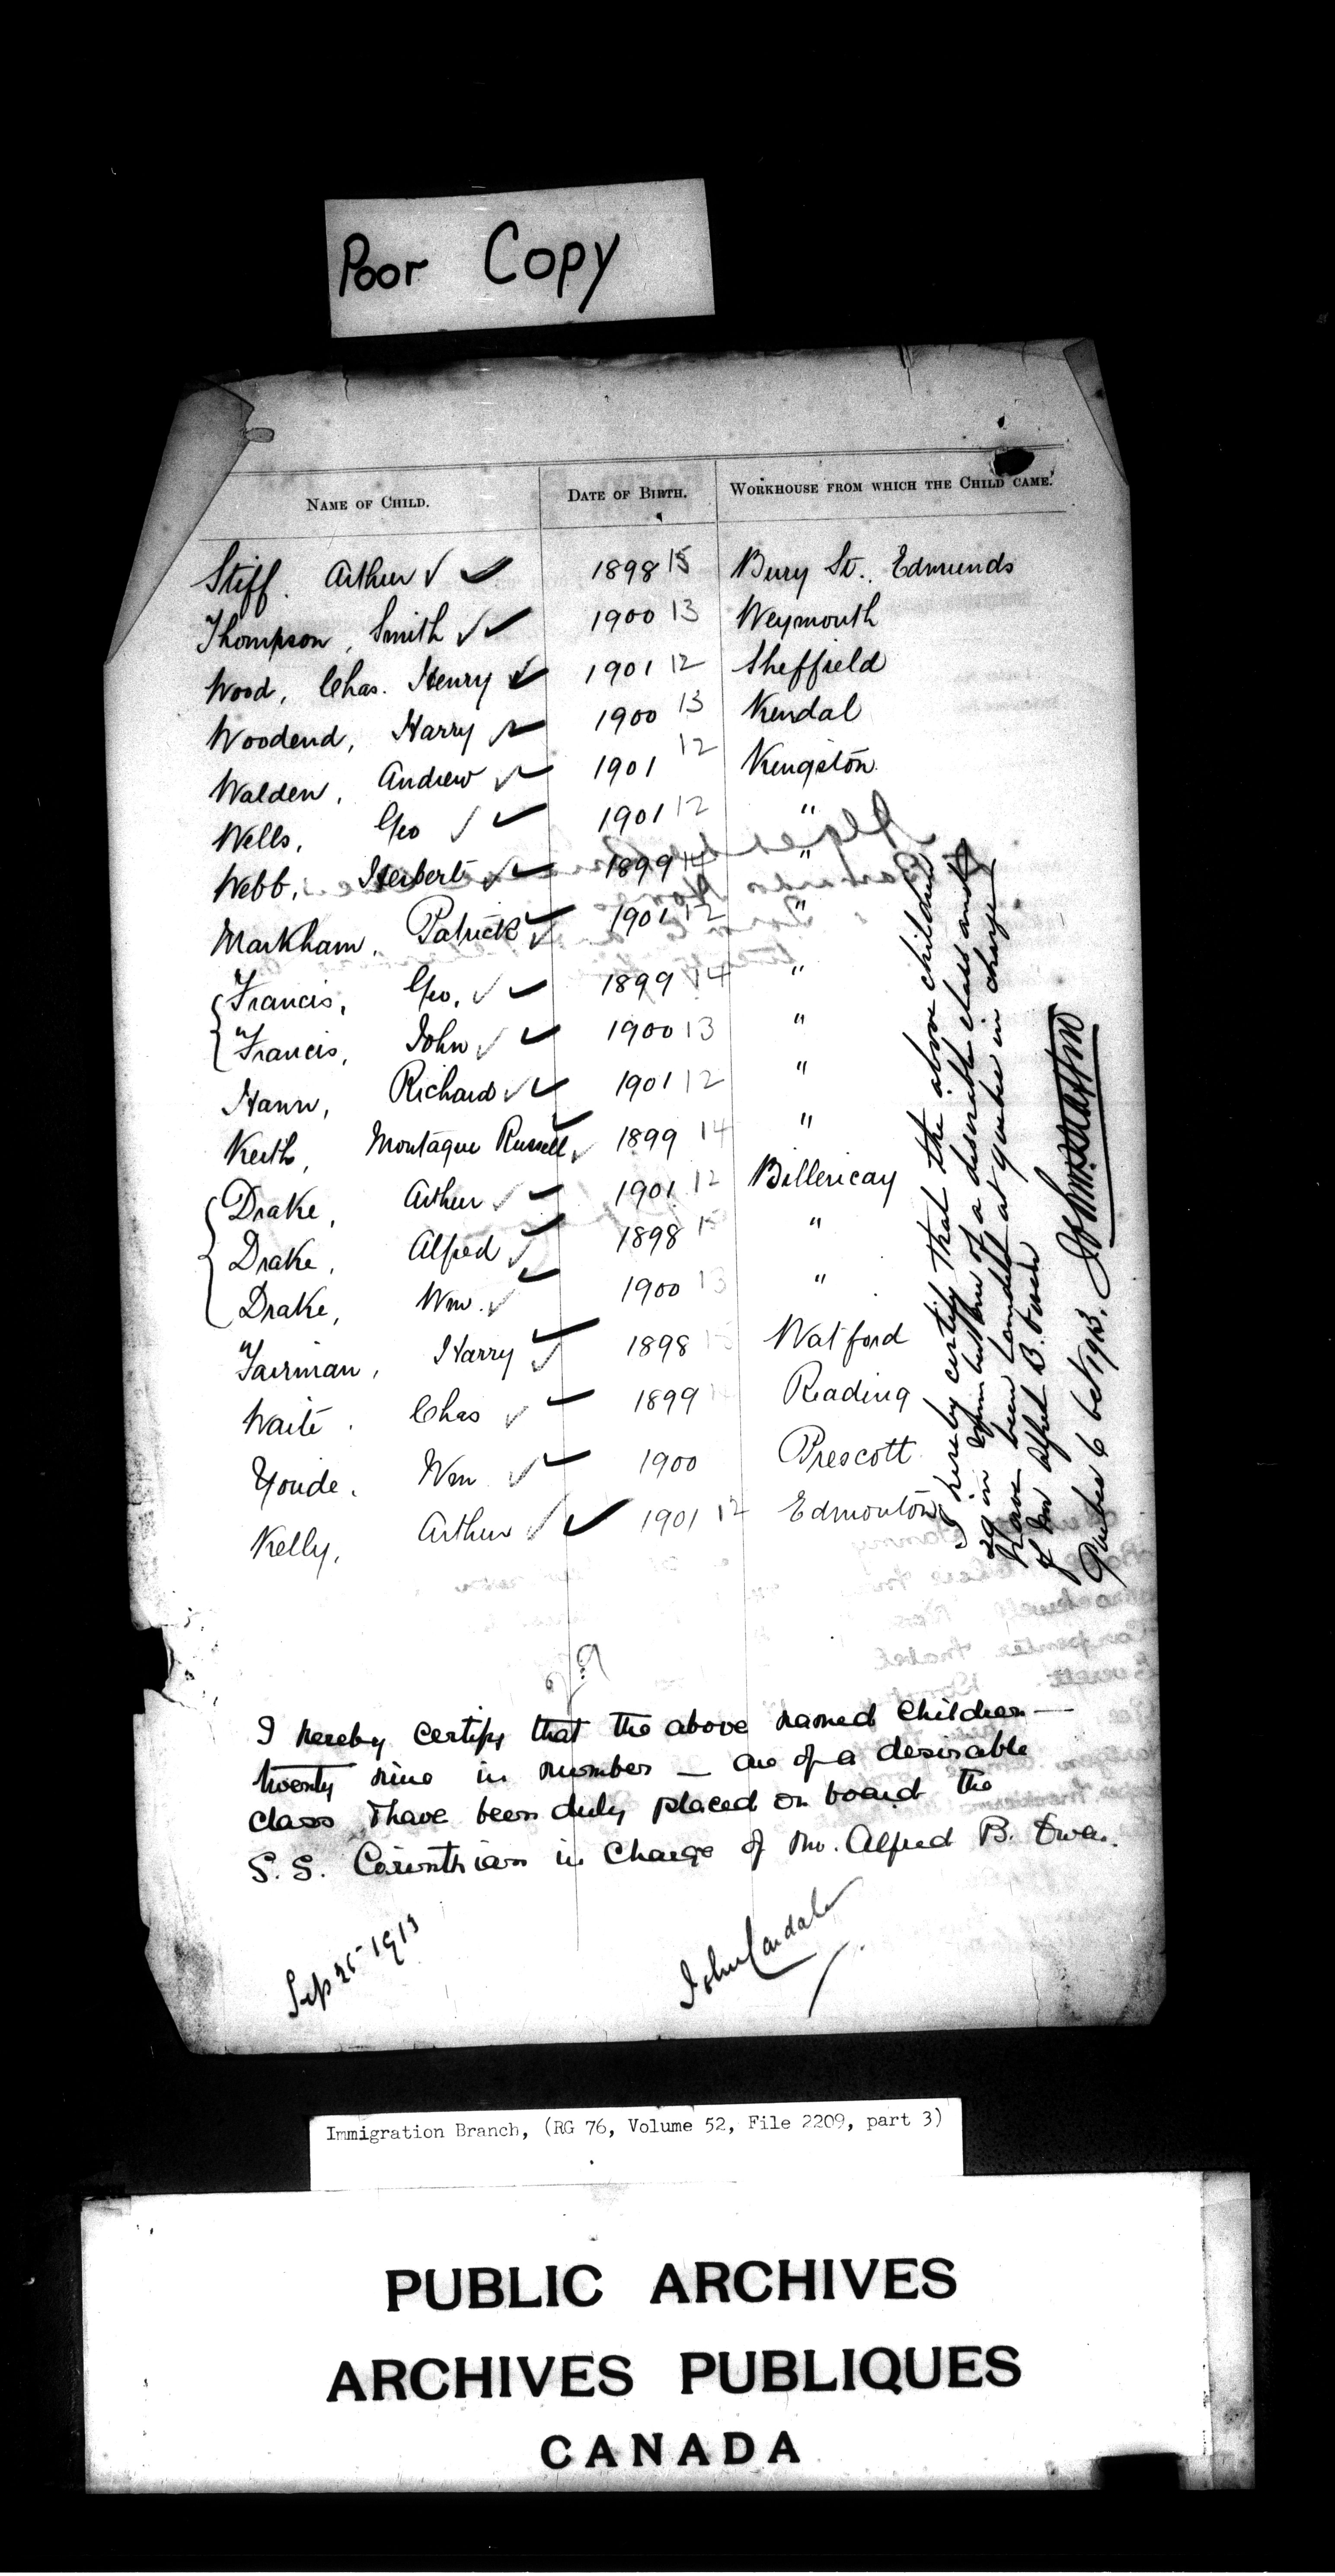 Poor Copy
NAME OF CHILD. DATE OF BIRTH. WORKHOUSE FROM WHICH THE CHILD CAME.
Stiff. Arthur 1898 15 Bury St. Edmunds
Thompson, Smith 1900 13 Weymouth
Wood, Chas. Henry 1901 12 Sheffield
Woodend, Harry 1900 13 Kendal
Walden, Andrew 1901 12 Kingston
Wells, Geo 1901 12 "
Webb, Herbert 1899 14 "
Markham, Patrick 1901 12 "
Francis, Geo. 1899 14 "
Francis, John 1900 13 "
Hann, Richard 1901 12 "
Keith, Montague Russell 1899 14 "
Drake, Arthur 1901 12 Billericay
Drake, Alfred 1898 15 "
Drake, Wm. 1900 13 "
Fairman, Harry 1898 15 Watford
Waite. Chas 1899 Reading
Youde. Wm 1900 Prescott
Kelly, Arthur 1901 12 Edmonton
I hereby certify that the above children
29 in number are of a desirable class and
have been landed at Quebec in charge
of Mr Alfred B. Owen
Quebec 6 Oct 1913.
29
I hereby certify that the above named children —
twenty nine in number — are of a desirable
class & have been duly placed on board the
S.S. Corinthian in charge of Mr. Alfred B. Owen.
Sep 25 1913
John Cardale
Immigration Branch, (RG 76, Volume 52, File 2209, part 3)
PUBLIC ARCHIVES
ARCHIVES PUBLIQUES
CANADA